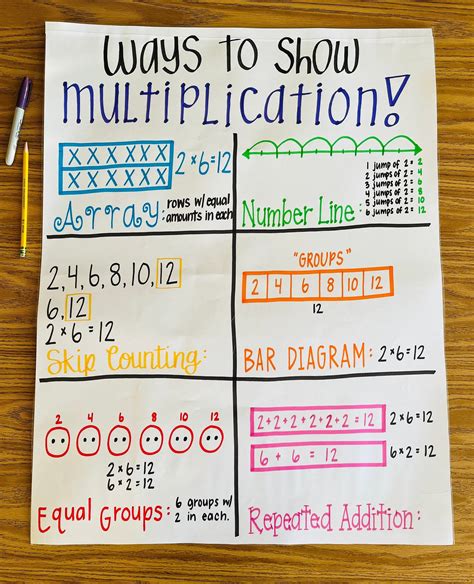 Ways to Show
Multiplication!
X X X X X X
X X X X X X
2×6=12
Array: rows w/ equal
amounts in each
1 jump of 2 = 2
2 jumps of 2 = 4
3 jumps of 2 = 6
4 jumps of 2 = 8
5 jumps of 2 = 10
6 jumps of 2 = 12
Number Line:
2, 4, 6, 8, 10, 12
6, 12
2×6=12
Skip Counting:
"GROUPS"
2 4 6 8 10 12
12
BAR DIAGRAM: 2×6=12
2 4 6 8 10 12
2×6=12
6×2=12
Equal Groups: 6 groups w/
2 in each.
2+2+2+2+2+2=12 2×6=12
6 + 6 = 12 6×2=12
Repeated Addition: